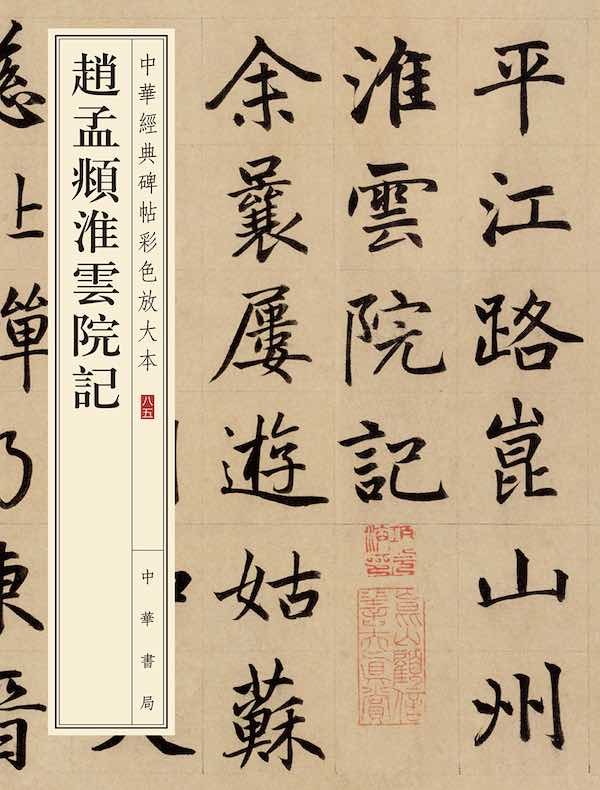 平江路崑山州
淮雲院記
余曩屢遊姑蘇
中華經典碑帖彩色放大本
八五
中華書局
趙孟頫淮雲院記